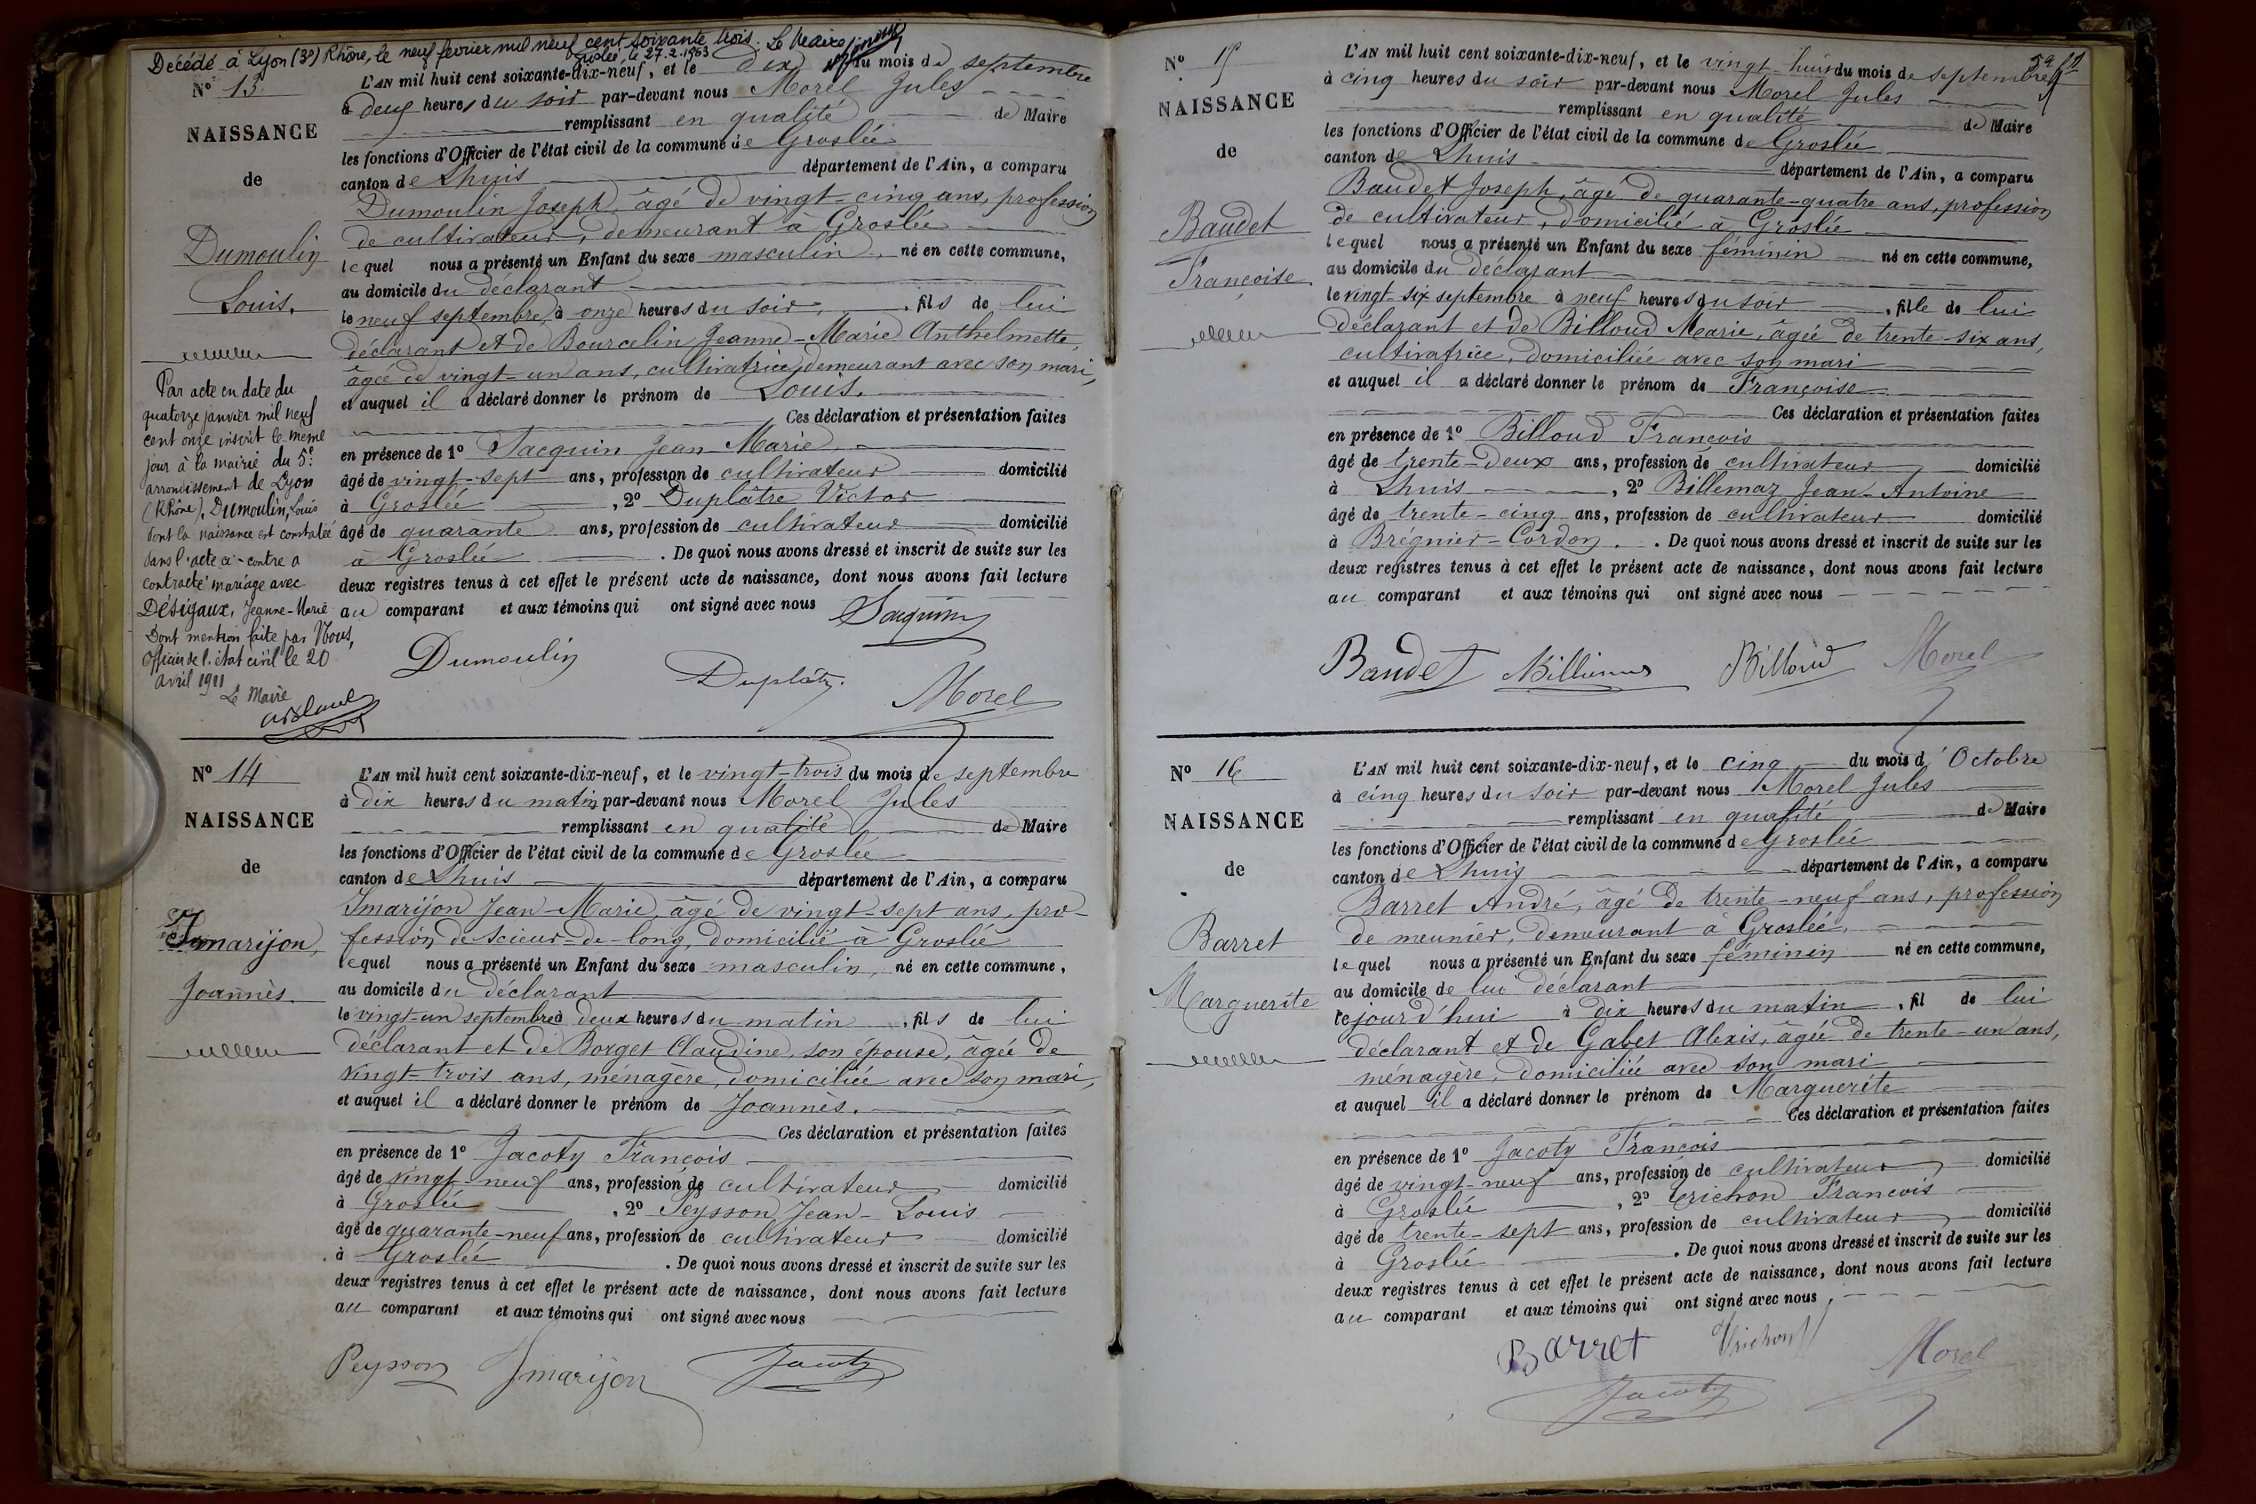 Décédé à Lyon (3e) Rhône, le neuf fevrier mil neuf cent soixante trois. Le Maire
Groslée, le 27.2.1963
N° 13
NAISSANCE
de
Dumoulin
Louis.
Par acte en date du
quatorze janvier mil neuf
cent onze inscrit le meme
jour à la mairie du 5e
arrondissement de Lyon
(Rhône), Dumoulin, Louis
dont la naissance est constatée
dans l'acte ci-contre a
contracté mariage avec
Désigaux, Jeanne-Marie
Dont mention faite par Nous,
Officier de l'état civil le 20
avril 1911
Le Maire
L'AN mil huit cent soixante-dix-neuf, et le dix du mois de septembre
à deux heures du soir par-devant nous Morel Jules
remplissant en qualité de Maire
les fonctions d'Officier de l'état civil de la commune de Groslée
canton de Lhuis département de l'Ain, a comparu
Dumoulin Joseph, âgé de vingt-cinq ans, profession
de cultivateur, demeurant à Groslée
lequel nous a présenté un Enfant du sexe masculin, né en cette commune,
au domicile du déclarant
le neuf septembre, à onze heures du soir, fils de lui
déclarant et de Bourcelin Jeanne-Marie Anthelmette,
âgée de vingt-un ans, cultivatrice, demeurant avec son mari,
et auquel il a déclaré donner le prénom de Louis.
Ces déclaration et présentation faites
en présence de 1° Jacquin Jean Marie
âgé de vingt-sept ans, profession de cultivateur domicilié
à Groslée, 2° Duplâtre Victor
âgé de quarante ans, profession de cultivateur domicilié
à Groslée. De quoi nous avons dressé et inscrit de suite sur les
deux registres tenus à cet effet le présent acte de naissance, dont nous avons fait lecture
au comparant et aux témoins qui ont signé avec nous
Jacquin
Dumoulin
Duplâtre
Morel
N° 14
NAISSANCE
de
Imarijon
Joannès.
L'AN mil huit cent soixante-dix-neuf, et le vingt-trois du mois de septembre
à dix heures du matin par-devant nous Morel Jules
remplissant en qualité de Maire
les fonctions d'Officier de l'état civil de la commune de Groslée
canton de Lhuis département de l'Ain, a comparu
Imarijon Jean-Marie, âgé de vingt-sept ans, pro-
fession de scieur-de-long, domicilié à Groslée
lequel nous a présenté un Enfant du sexe masculin, né en cette commune,
au domicile du déclarant
le vingt-un septembre à deux heures du matin, fils de lui
déclarant et de Borget Claudine, son épouse, âgée de
vingt-trois ans, ménagère, domiciliée avec son mari,
et auquel il a déclaré donner le prénom de Joannès.
Ces déclaration et présentation faites
en présence de 1° Jacoty François
âgé de vingt neuf ans, profession de cultivateur domicilié
à Groslée, 2° Peysson Jean-Louis
âgé de quarante-neuf ans, profession de cultivateur domicilié
à Groslée. De quoi nous avons dressé et inscrit de suite sur les
deux registres tenus à cet effet le présent acte de naissance, dont nous avons fait lecture
au comparant et aux témoins qui ont signé avec nous
Peysson Imarijon Jacoty
N° 15
NAISSANCE
de
Baudet
Françoise.
L'AN mil huit cent soixante-dix-neuf, et le vingt-huit du mois de septembre
à cinq heures du soir par-devant nous Morel Jules
remplissant en qualité de Maire
les fonctions d'Officier de l'état civil de la commune de Groslée
canton de Lhuis département de l'Ain, a comparu
Baudet Joseph, âgé de quarante-quatre ans, profession
de cultivateur, domicilié à Groslée
lequel nous a présenté un Enfant du sexe féminin né en cette commune,
au domicile du déclarant
le vingt-six septembre à neuf heures du soir, fille de lui
déclarant et de Billoud Marie, âgée de trente-six ans,
cultivatrice, domiciliée avec son mari
et auquel il a déclaré donner le prénom de Françoise
Ces déclaration et présentation faites
en présence de 1° Billoud François
âgé de trente-deux ans, profession de cultivateur, domicilié
à Lhuis, 2° Billemaz Jean-Antoine
âgé de trente-cinq ans, profession de cultivateur domicilié
à Brégnier-Cordon. De quoi nous avons dressé et inscrit de suite sur les
deux registres tenus à cet effet le présent acte de naissance, dont nous avons fait lecture
au comparant et aux témoins qui ont signé avec nous
Baudet Billoud Morel
N° 16
NAISSANCE
de
Barret
Marguerite
L'AN mil huit cent soixante-dix-neuf, et le cinq du mois d'Octobre
à cinq heures du soir par-devant nous Morel Jules
remplissant en qualité de Maire
les fonctions d'Officier de l'état civil de la commune de Groslée
canton de Lhuis département de l'Ain, a comparu
Barret André, âgé de trente-neuf ans, profession
de meunier, demeurant à Groslée,
lequel nous a présenté un Enfant du sexe féminin né en cette commune,
au domicile de lui déclarant
le jourd'hui à dix heures du matin, fil de lui
déclarant et de Gabet Alexis, âgée de trente-un ans,
ménagère, domiciliée avec son mari
et auquel il a déclaré donner le prénom de Marguerite
Ces déclaration et présentation faites
en présence de 1° Jacoty François
âgé de vingt-neuf ans, profession de cultivateur, domicilié
à Groslée, 2° Trichon François
âgé de trente-sept ans, profession de cultivateur, domicilié
à Groslée. De quoi nous avons dressé et inscrit de suite sur les
deux registres tenus à cet effet le présent acte de naissance, dont nous avons fait lecture
au comparant et aux témoins qui ont signé avec nous,
Barret Trichon Morel
Jacoty